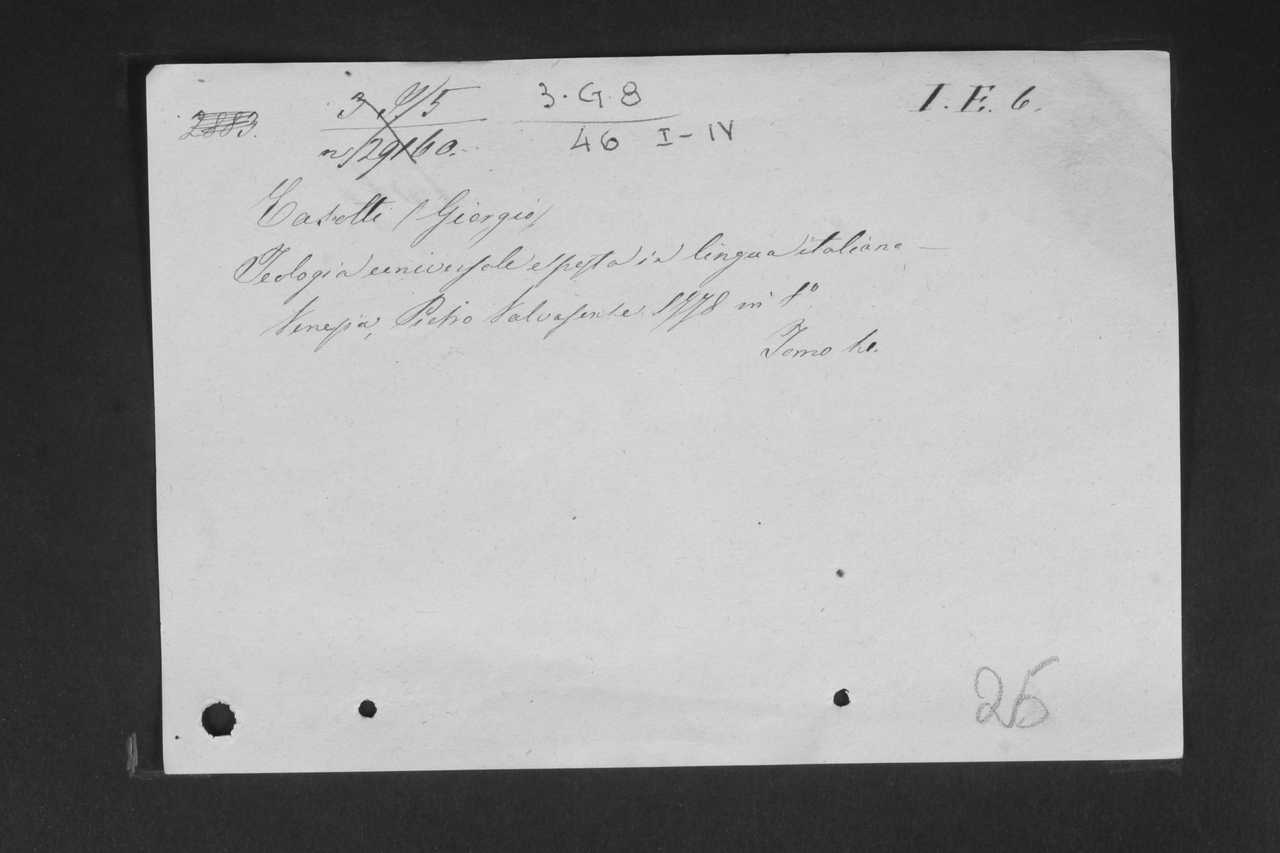 2883.
3 Y/5
n/29160.
3. G. 8
46 I-IV
I. E. 6.
(Giorgio)
Teologia universale esposta in lingua italiana —
Venezia, Pietro Valvasense 1778 in 8°
Tomo
25